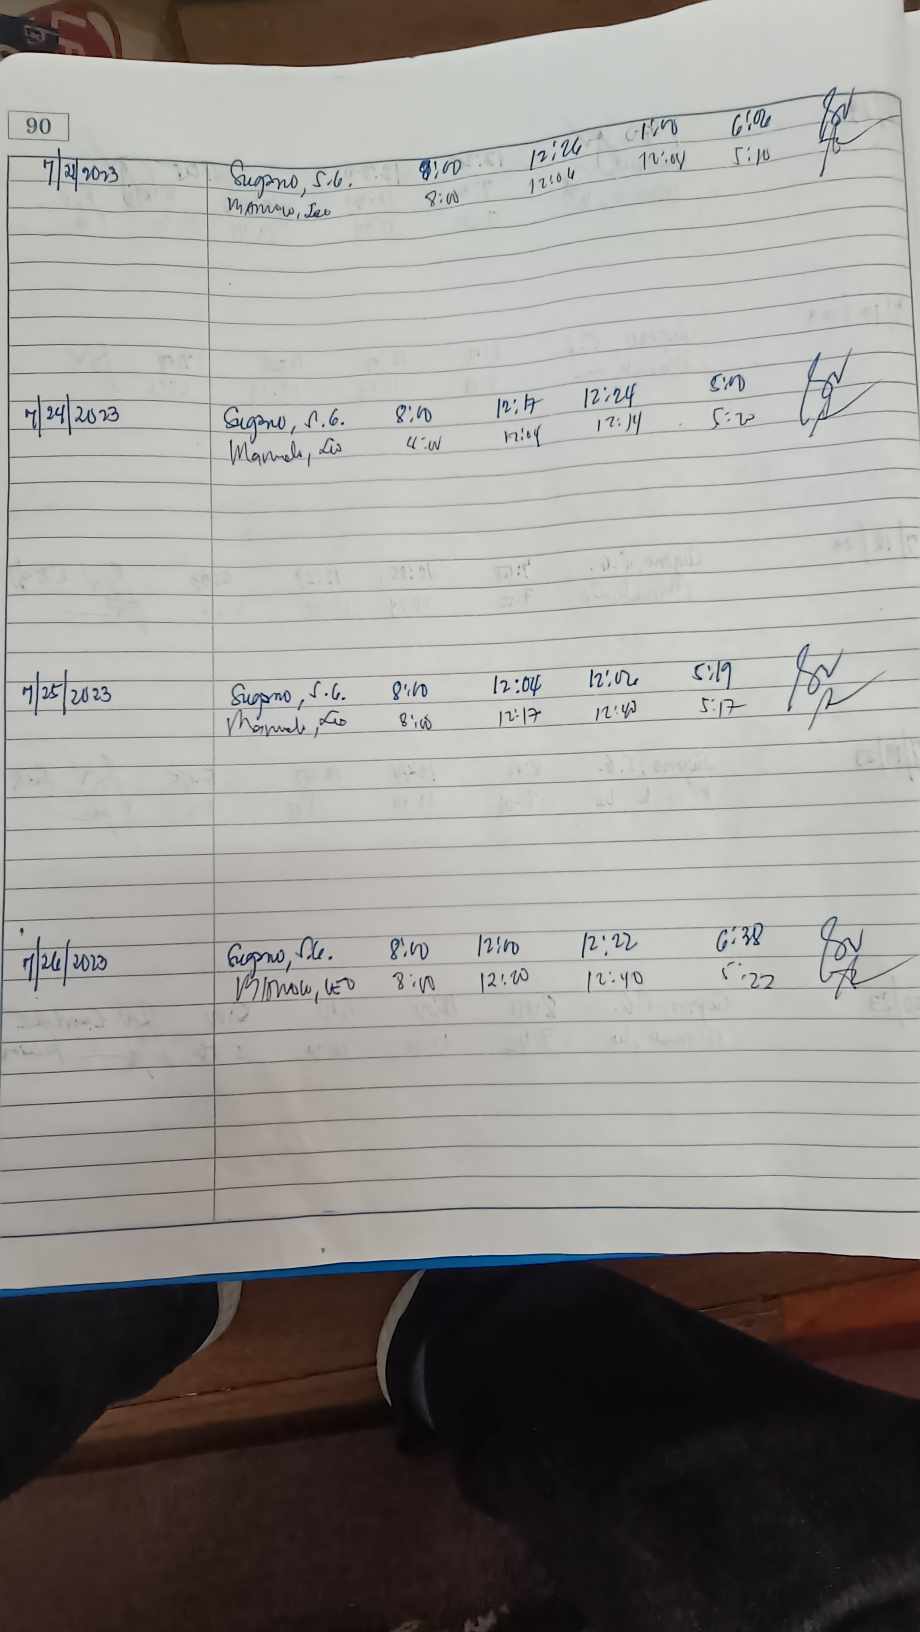 90
7/21/2023 Sugano, S.G. 8:00 12:26 1:00 6:06
Leo 8:00 12:04 12:04 5:10
7/24/2023 Sugano, S.G. 8:00 12:17 12:24 5:00
Leo 12:04 12:14 5:20
7/25/2023 Sugano, S.G. 8:00 12:04 12:02 5:19
Leo 8:00 12:17 12:40 5:17
7/26/2023 Sugano, S.G. 8:00 12:00 12:22 6:38
LEO 8:00 12:20 12:40 5:22